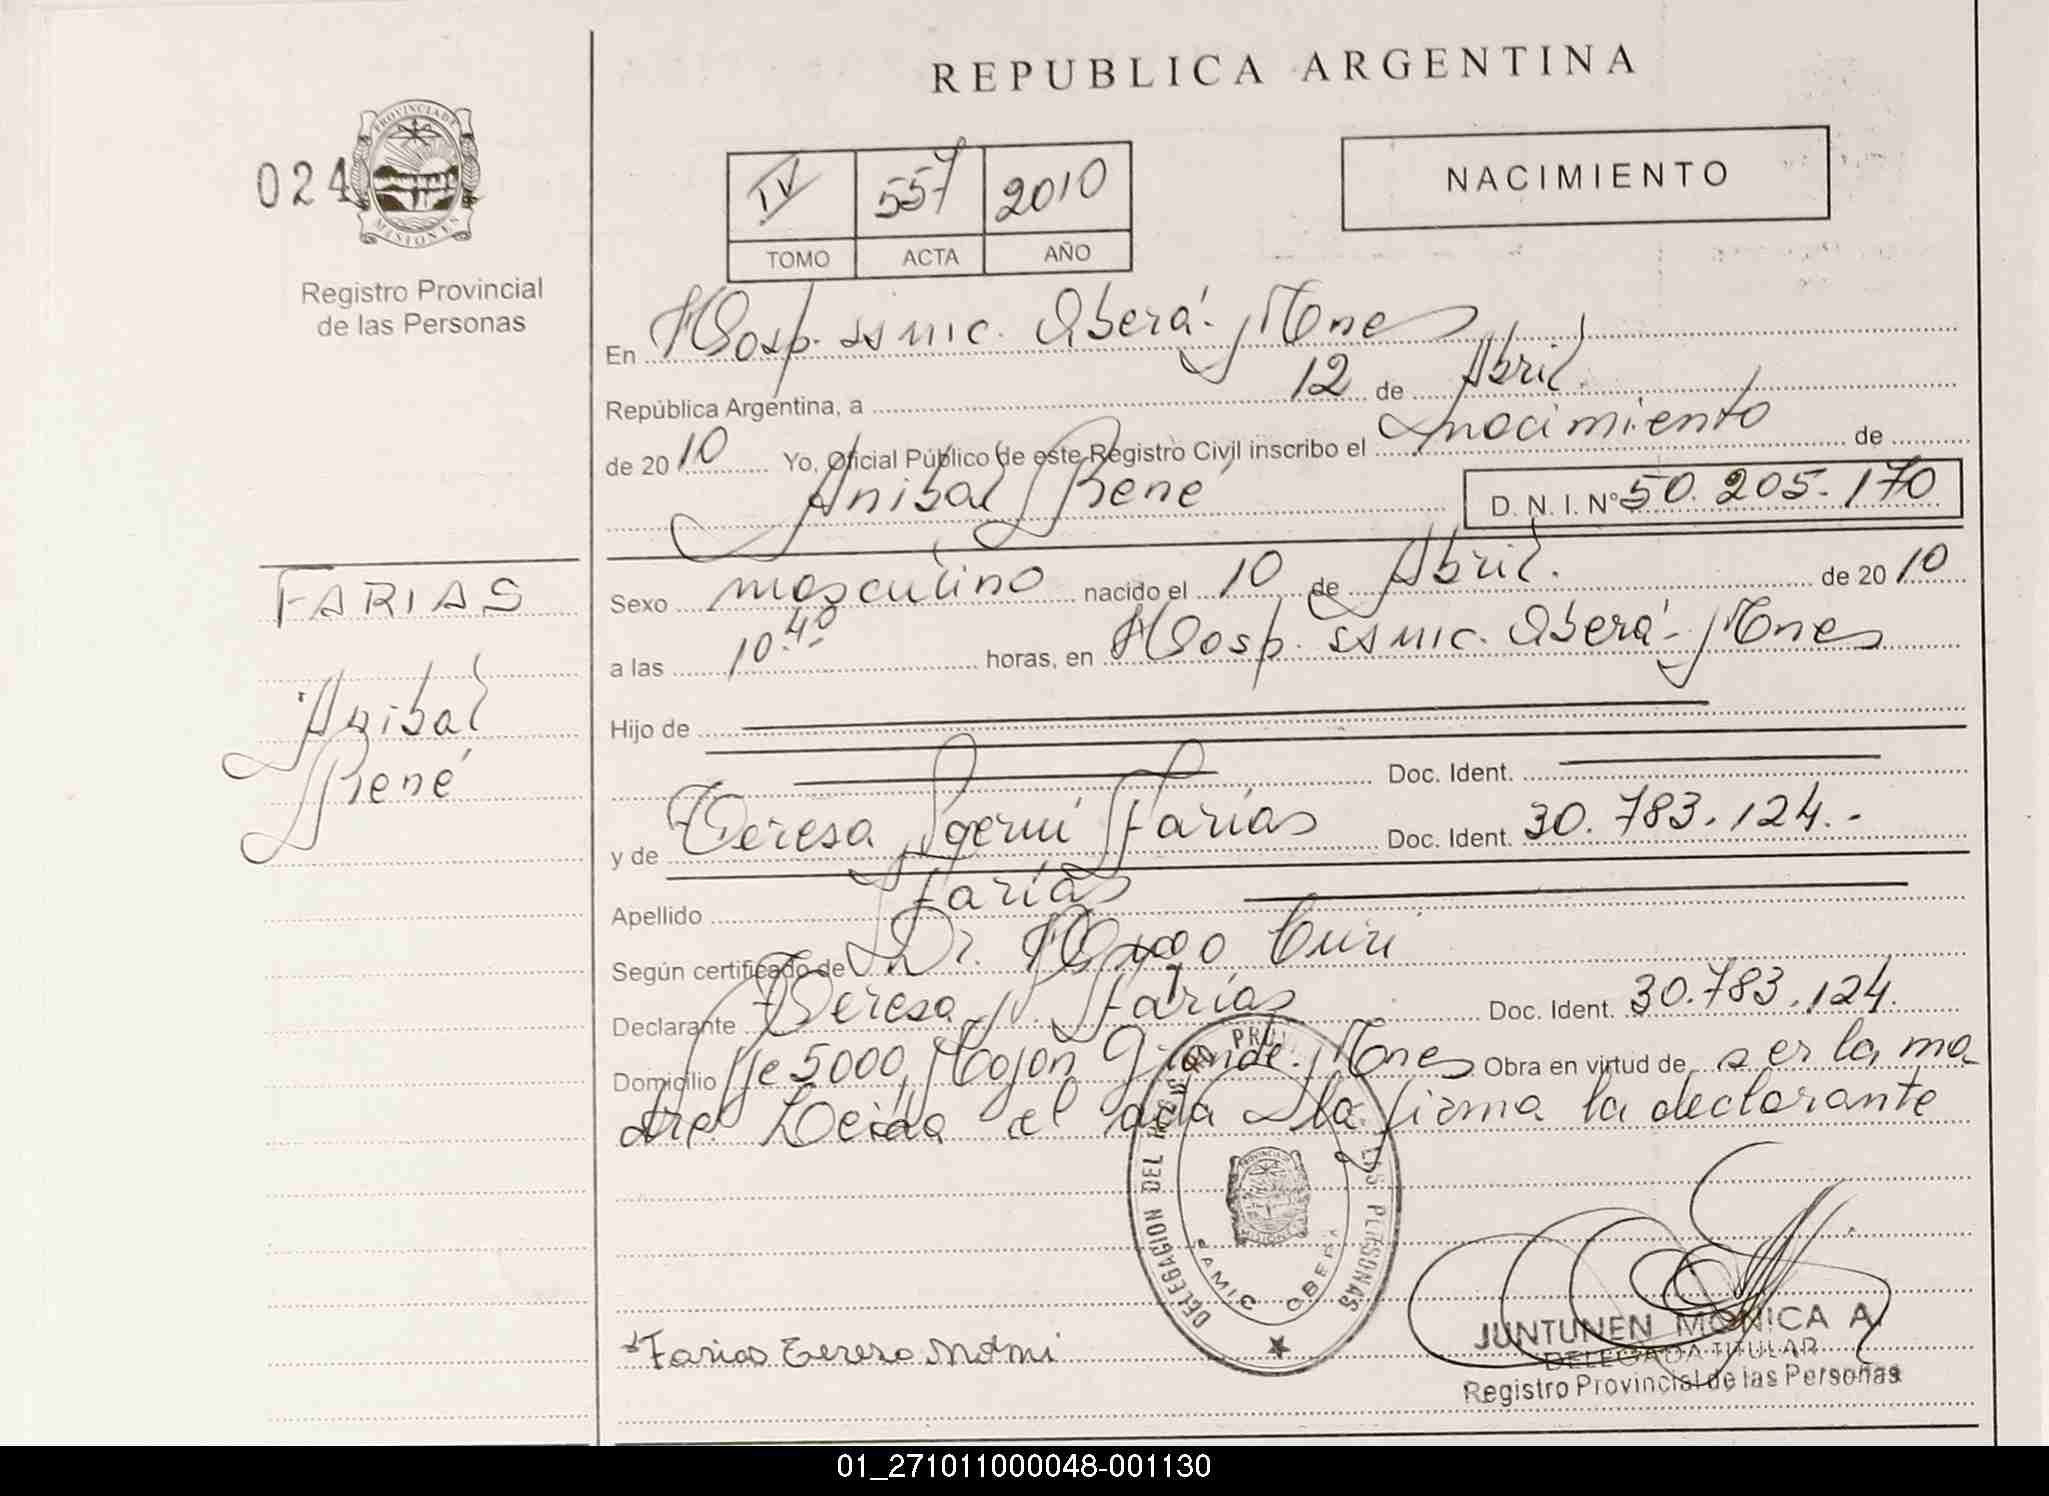 REPUBLICA ARGENTINA
024
PROVINCIA DE
MISIONES
Registro Provincial
de las Personas
IV 557 2010
TOMO ACTA AÑO
NACIMIENTO
En Hosp. SAMIC. Oberá - Mnes
República Argentina, a 12 de Abril.
de 2010 Yo, Oficial Público de este Registro Civil inscribo el nacimiento de
Anibal René
D. N. I. Nº 50.205.170
FARIAS
Anibal
René
Sexo masculino nacido el 10 de Abril. de 2010
a las 10.40 horas, en Hosp. SAMIC. Oberá - Mnes
Hijo de
Doc. Ident.
y de Teresa Farías Doc. Ident. 30.783.124.-
Apellido Farías
Según certificado de Dr. Hugo Curi
Declarante Teresa N. Farías Doc. Ident. 30.783.124.
Domicilio Me 5000, Mojon Grande. Mnes Obra en virtud de ser la ma
dre. Leida el acta la firma la declarante
DELEGACION DEL REGISTRO PROV LAS PERSONAS
SAMIC OBERA
Farias Tereso Noemi
JUNTUNEN MONICA A.
DELEGADA TITULAR
Registro Provincial de las Personas
01_271011000048-001130